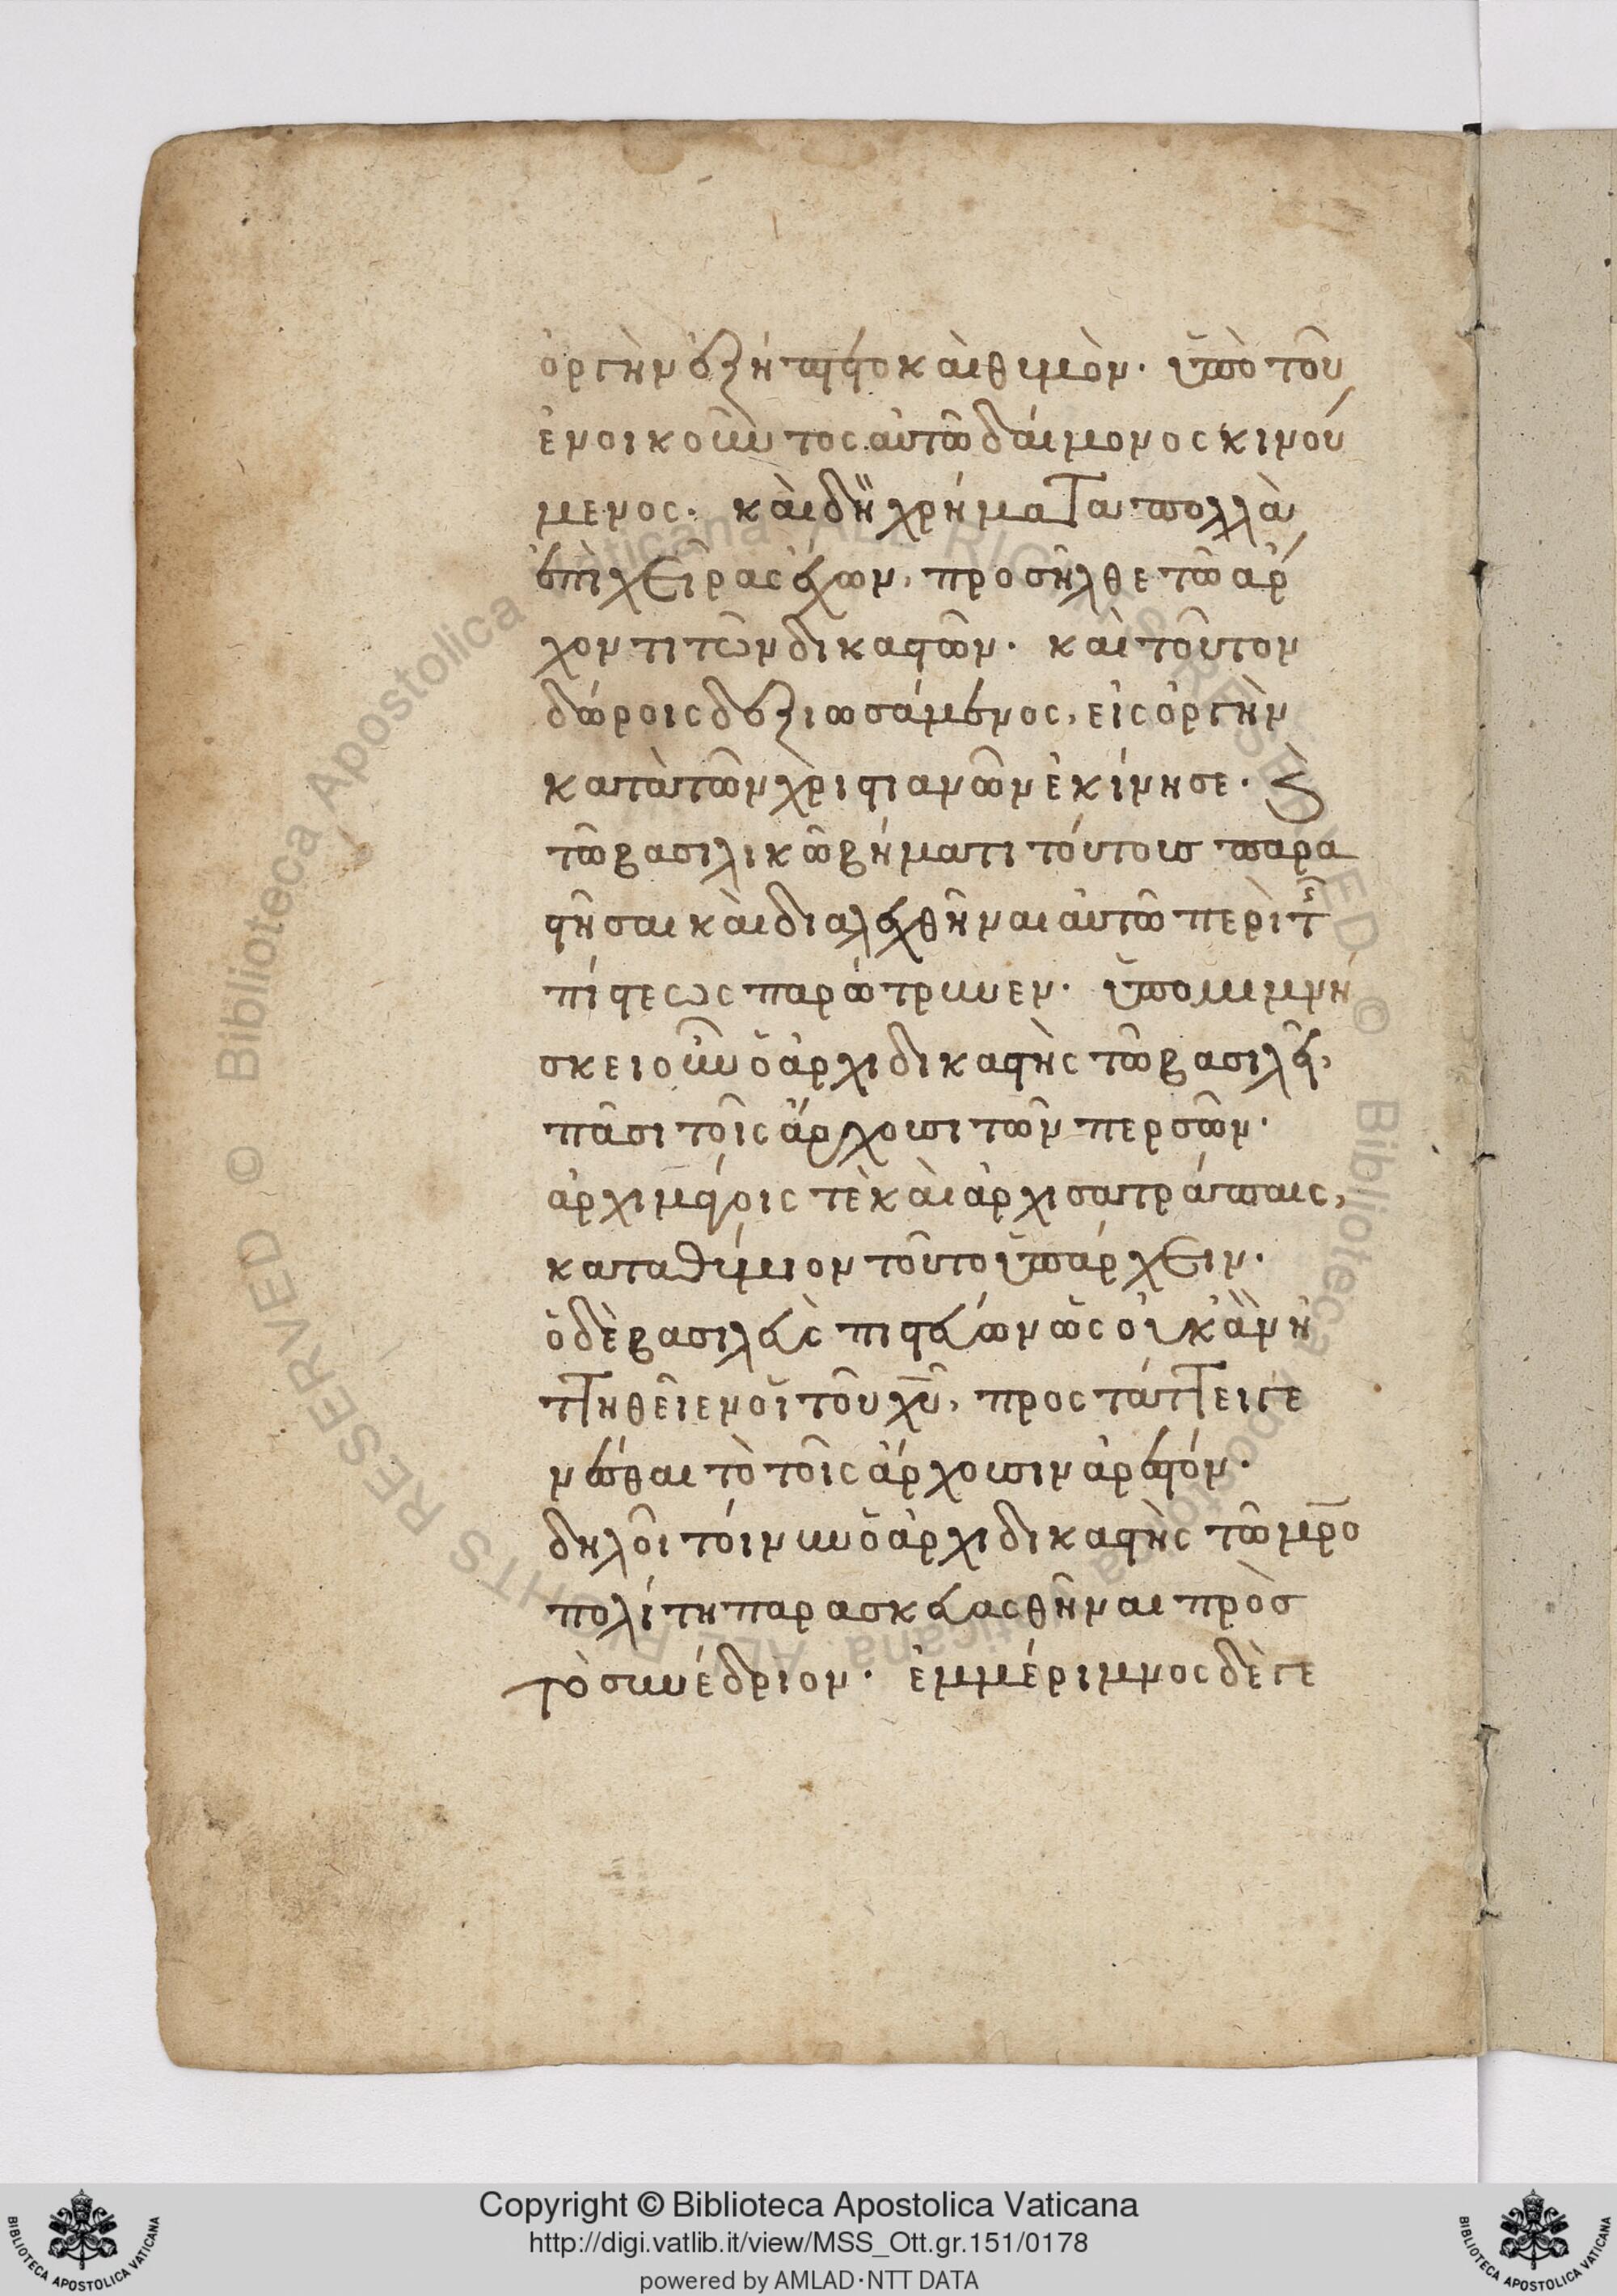 ὀργὴν ἐξήπτετο καὶ θυμὸν· ὑπὸ τοῦ
ἐνοικοῦντος αὐτῶ δαίμονος κινού
μενος· καὶ δὴ χρήματα πολλὰ
ἐπὶ χεῖρας ἔχων, προσῆλθε τῶ ἀρ
χοντι τῶν δικαστῶν· καὶ τοῦτον
δώροις δεξιωσάμενος, εἰς ὀργὴν
κατὰ τῶν χριστιανῶν ἐκίνησε· ϛ
τῶ βασιλικῶ βήματι τούτους παρα
στῆσαι καὶ διαλεχθῆναι αὐτῶ περὶ τῆς
πίστεως παρώτρυνεν· ὑπομιμνή
σκει οὖν ὁ ἀρχιδικαστὴς τῶ βασιλεῖ,
πᾶσι τοῖς ἄρχουσι τῶν περσῶν·
ἀρχιμάγοις τὲ καὶ ἀρχισατράπαις,
καταθύμιον τοῦτο ὑπάρχειν·
ὁ δὲ βασιλεὺς πιστεύων ὡς οὐκ ἂν ἡ
ττηθείεν οἱ τοῦ χ̅υ̅, προστάττει γε
νέσθαι τὸ τοῖς ἄρχουσιν ἀρεστόν·
δηλοῖ τοίνυν ὁ ἀρχιδικαστὴς τῶ μ̅ρ̅ο
πολίτη παρασκευασθῆναι πρὸσ
τὸ συνέδριον· ἐμμέριμνος δὲ γε
Copyright © Biblioteca Apostolica Vaticana
http://digi.vatlib.it/view/MSS_Ott.gr.151/0178
powered by AMLAD·NTT DATA